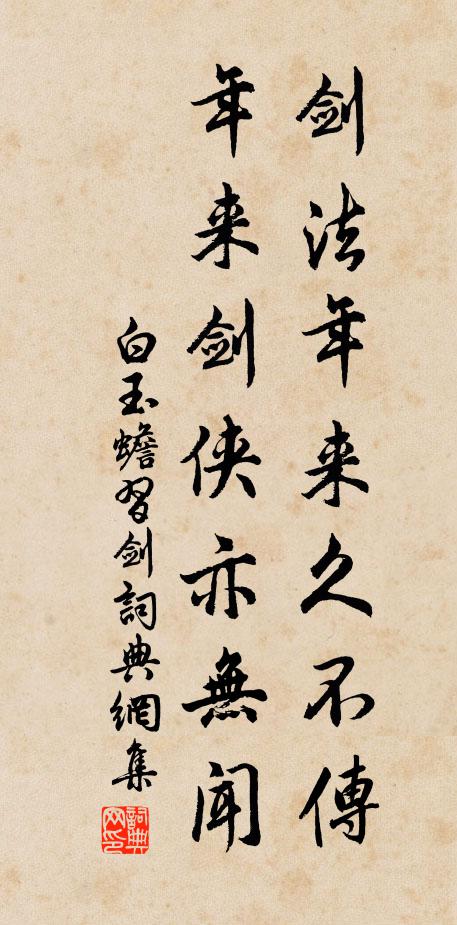 剑法年来久不傳
年来剑侠亦無闻
白玉蟾習剑詞典網集
詞典
网印